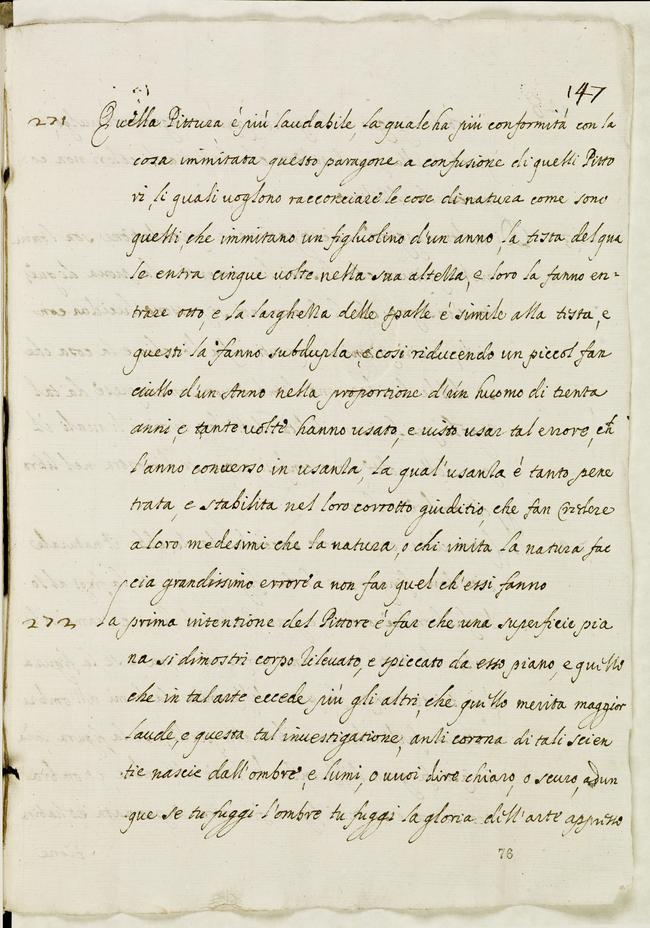 147
271 Quella Pittura é piú laudabile, la quale ha piú conformitá con la
cosa immitata questo paragone a confusione di quelli Pitto
ri, li quali voglono racconciare le cose di natura come sono
quelli, che immitano un figliuolino d'un anno, la testa del qua
le entra cinque volte nella sua altezza, e loro la fanno en=
trare otto, e la larghezza delle spalle é simile alla testa, e
questi la fanno subdupla, e cosi riducendo un piccol fan
ciullo d'un Anno nella proportione d'un huomo di trenta
anni, e tante volte hanno usato, e visto usar tal errore, ch
l'anno converso in usanza, la qual'usanza é tanto pene
trata, e stabilita nel loro corrotto giuditio, che fan credere
a loro medesimi che la natura, o chi imita la natura fac
cia grandissimo errore a non far quel ch'essi fanno
272 La prima intentione del Pittore é far che una superficie pia
na si dimostri corpo rilevato, e spiccato da esso piano, e quello
che in tal arte eccede piú gli altri, che quello merita maggior
laude, e questa tal investigatione, anzi corona di tali scien
tie nascie dall'ombre, e lumi, o vuoi dire chiaro, o scuro, adun
que se tu fuggi l'ombre tu fuggi la gloria dell'arte appresso
76